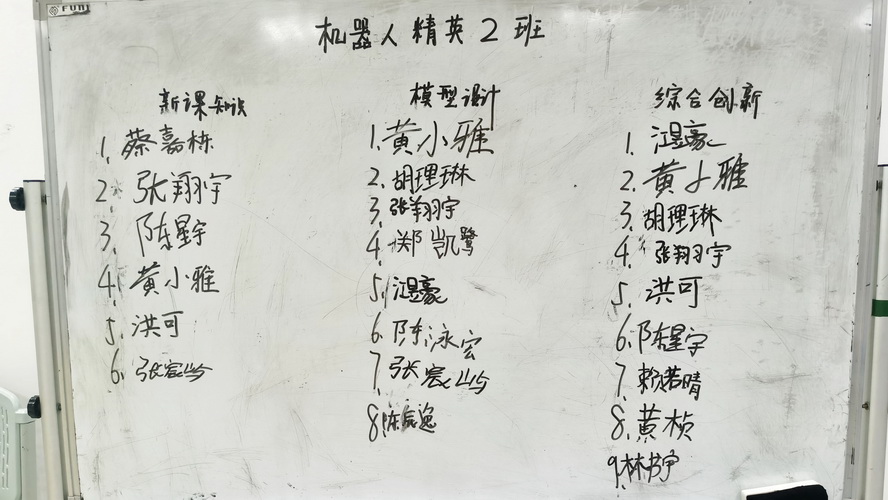 机器人精英2班
新课知识
1.蔡嘉栋
2.张翔宇
3.陈星宇
4.黄小雅
5.洪可
6.张宸屿
模型设计
1.黄小雅
2.胡理琳
3.张翔宇
4.郑凯鹭
5.江昱豪
6.陈泳宏
7.张宸屿
8.陈宸逸
综合创新
1.江昱豪
2.黄小雅
3.胡理琳
4.张翔宇
5.洪可
6.陈星宇
7.赖若晴
8.黄桢
9.林书宇